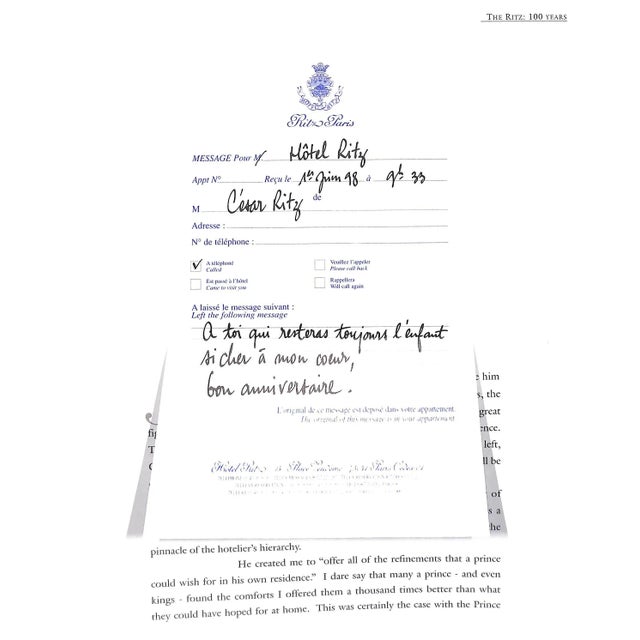 THE RITZ: 100 YEARS
Ritz Paris
MESSAGE Pour M Hôtel Ritz
Appt N° Reçu le 1er Juin 98 à 9h 33
de
M César Ritz
Adresse :
N° de téléphone :
A téléphoné
Called
Veuillez l'appeler
Please call back
Est passé à l'hôtel
Came to visit you
Rappellera
Will call again
A laissé le message suivant :
Left the following message
A toi qui resteras toujours l'enfant
si cher à mon coeur,
bon anniversaire.
L'original de ce message est déposé dans votre appartement.
The original of this message is in your appartement.
Hôtel Ritz Place Vendôme Paris
him
, the
great
ence.
left,
ll be
of
s a
he
fi
T
pinnacle of the hotelier's hierarchy.
He created me to "offer all of the refinements that a prince
could wish for in his own residence." I dare say that many a prince - and even
kings - found the comforts I offered them a thousand times better than what
they could have hoped for at home. This was certainly the case with the Prince